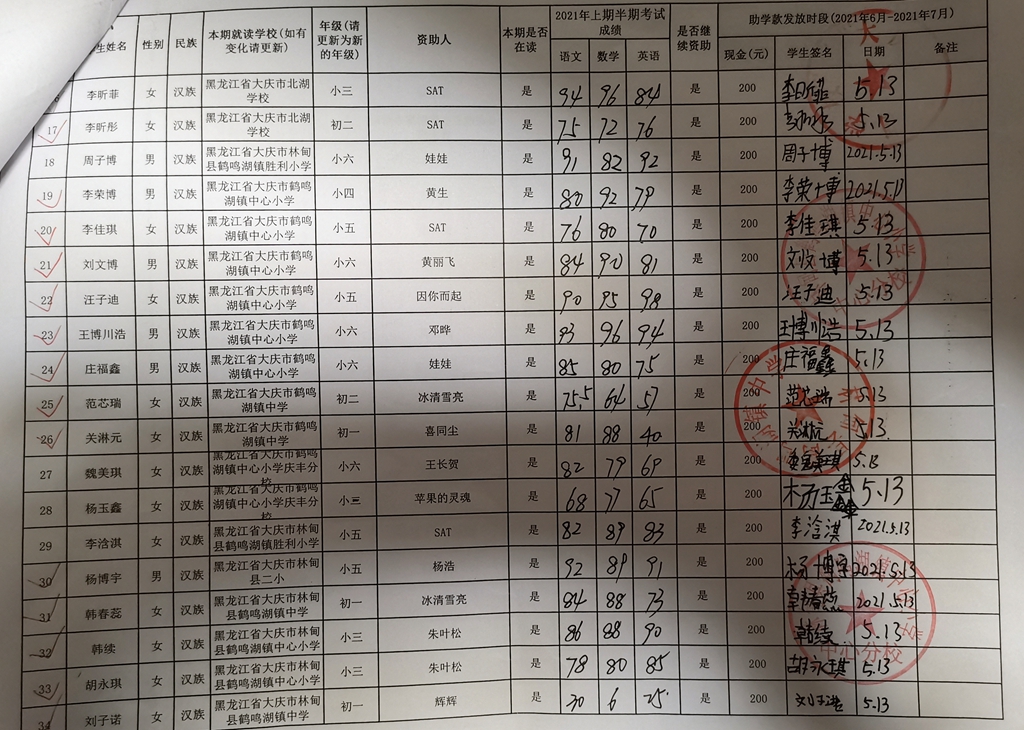 2021年上期半期考试成绩 助学款发放时段(2021年6月-2021年7月)
生姓名 性别 民族 本期就读学校(如有变化请更新) 年级(请更新为新的年级) 资助人 本期是否在读 语文 数学 英语 是否继续资助 现金(元) 学生签名 日期 备注
李昕菲 女 汉族 黑龙江省大庆市北湖学校 小三 SAT 是 94 96 84 是 200 李昕菲 5.13
17 李昕彤 女 汉族 黑龙江省大庆市北湖学校 初二 SAT 是 75 72 76 是 200 5.13
18 周子博 男 汉族 黑龙江省大庆市林甸县鹤鸣湖镇胜利小学 小六 娃娃 是 91 82 92 是 200 周子博 2021.5.13
19 李荣博 男 汉族 黑龙江省大庆市鹤鸣湖镇中心小学 小四 黄生 是 80 92 79 是 200 李荣博 2021.5.13
20 李佳琪 女 汉族 黑龙江省大庆市鹤鸣湖镇中心小学 小五 SAT 是 76 80 70 是 200 李佳琪 5.13
21 刘文博 男 汉族 黑龙江省大庆市鹤鸣湖镇中心小学 小六 黄丽飞 是 84 90 81 是 200 刘文博 5.13
22 汪子迪 女 汉族 黑龙江省大庆市鹤鸣湖镇中心小学 小五 因你而起 是 90 95 98 是 200 汪子迪 5.13
23 王博川浩 男 汉族 黑龙江省大庆市鹤鸣湖镇中心小学 小六 邓晔 是 93 96 94 是 200 王博川浩 5.13
24 庄福鑫 男 汉族 黑龙江省大庆市鹤鸣湖镇中心小学 小六 娃娃 是 85 80 75 是 200 庄福鑫 5.13
25 范芯瑞 女 汉族 黑龙江省大庆市鹤鸣湖镇中学 初二 冰清雪亮 是 75.5 64 57 是 200 范芯瑞 5.13
26 关淋元 女 汉族 黑龙江省大庆市鹤鸣湖镇中学 初一 喜同尘 是 81 88 40 是 200 5.13
27 魏美琪 女 汉族 黑龙江省大庆市鹤鸣湖镇中心小学庆丰分校 小六 王长贺 是 82 79 69 是 200 5.13
28 杨玉鑫 女 汉族 黑龙江省大庆市鹤鸣湖镇中心小学庆丰分校 小三 苹果的灵魂 是 68 77 65 是 200 杨玉鑫 5.13
29 李浛淇 女 汉族 黑龙江省大庆市林甸县鹤鸣湖镇胜利小学 小五 SAT 是 82 89 83 是 200 李浛淇 2021.5.13
30 杨博宇 男 汉族 黑龙江省大庆市林甸县二小 小五 杨浩 是 92 89 91 是 200 杨博宇 2021.5.13
31 韩春蕊 女 汉族 黑龙江省大庆市林甸县鹤鸣湖镇中学 初一 冰清雪亮 是 84 88 73 是 200 韩春蕊 2021.5.13
32 韩续 女 汉族 黑龙江省大庆市林甸县鹤鸣湖镇中心小学 小三 朱叶松 是 86 88 90 是 200 韩续 5.13
33 胡永琪 女 汉族 黑龙江省大庆市林甸县鹤鸣湖镇中心小学 小三 朱叶松 是 78 80 85 是 200 胡永琪 5.13
34 刘子诺 女 汉族 黑龙江省大庆市林甸县鹤鸣湖镇中学 初一 辉辉 是 30 6 25 是 200 5.13
中心分校
中心分校